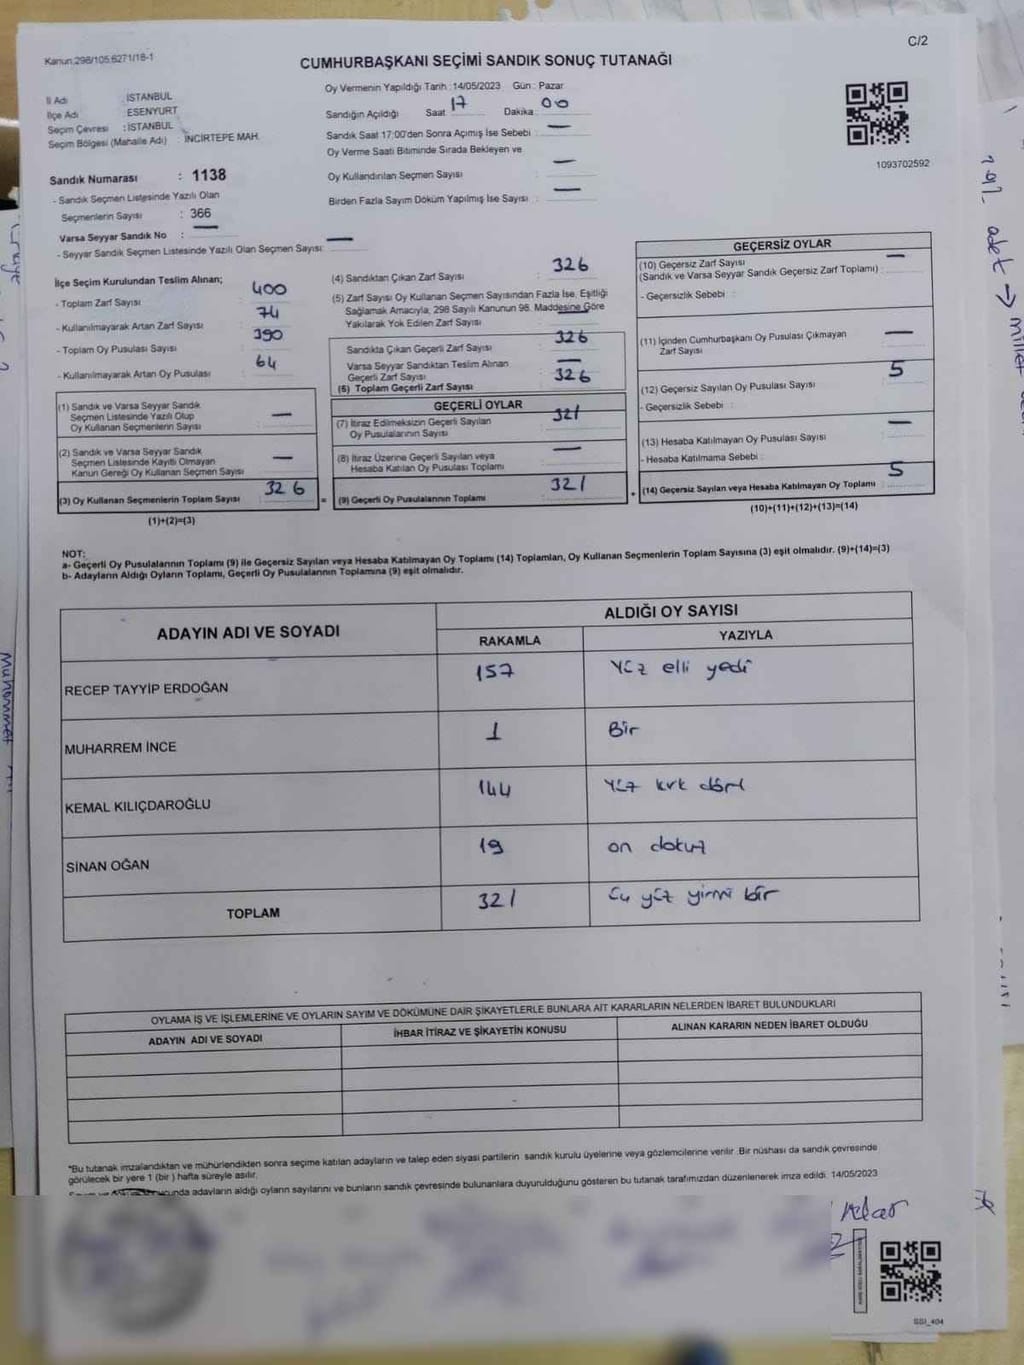 Kanun:298/105,6271/18-1
C/2
CUMHURBAŞKANI SEÇİMİ SANDIK SONUÇ TUTANAĞI
İl Adı : İSTANBUL
İlçe Adı : ESENYURT
Seçim Çevresi : İSTANBUL
Seçim Bölgesi (Mahalle Adı) : İNCİRTEPE MAH.
Oy Vermenin Yapıldığı Tarih :14/05/2023 Gün : Pazar
Sandığın Açıldığı Saat 17 Dakika 00
Sandık Saat 17:00'den Sonra Açımış İse Sebebi : —
Oy Verme Saati Bitiminde Sırada Bekleyen ve
Oy Kullandırılan Seçmen Sayısı : —
Birden Fazla Sayım Döküm Yapılmış İse Sayısı : —
1093702592
Sandık Numarası : 1138
- Sandık Seçmen Listesinde Yazılı Olan
Seçmenlerin Sayısı : 366
Varsa Seyyar Sandık No : —
- Seyyar Sandık Seçmen Listesinde Yazılı Olan Seçmen Sayısı: —
İlçe Seçim Kurulundan Teslim Alınan;
- Toplam Zarf Sayısı : 400
- Kullanılmayarak Artan Zarf Sayısı : 74
- Toplam Oy Pusulası Sayısı : 390
- Kullanılmayarak Artan Oy Pusulası : 64
(1) Sandık ve Varsa Seyyar Sandık
Seçmen Listesinde Yazılı Olup
Oy Kullanan Seçmenlerin Sayısı : —
(2) Sandık ve Varsa Seyyar Sandık
Seçmen Listesinde Kayıtlı Olmayan
Kanun Gereği Oy Kullanan Seçmen Sayısı : —
(3) Oy Kullanan Seçmenlerin Toplam Sayısı : 326
(1)+(2)=(3)
(4) Sandıktan Çıkan Zarf Sayısı : 326
(5) Zarf Sayısı Oy Kullanan Seçmen Sayısından Fazla İse, Eşitliği
Sağlamak Amacıyla, 298 Sayılı Kanunun 98. Maddesine Göre
Yakılarak Yok Edilen Zarf Sayısı : —
Sandıkta Çıkan Geçerli Zarf Sayısı : 326
Varsa Seyyar Sandıktan Teslim Alınan
Geçerli Zarf Sayısı : —
(6) Toplam Geçerli Zarf Sayısı : 326
GEÇERLİ OYLAR
(7) İtiraz Edilmeksizin Geçerli Sayılan
Oy Pusulalarının Sayısı : 321
(8) İtiraz Üzerine Geçerli Sayılan veya
Hesaba Katılan Oy Pusulası Toplamı : —
= (9) Geçerli Oy Pusulalarının Toplamı : 321
GEÇERSİZ OYLAR
(10) Geçersiz Zarf Sayısı
(Sandık ve Varsa Seyyar Sandık Geçersiz Zarf Toplamı) : —
- Geçersizlik Sebebi :
(11) İçinden Cumhurbaşkanı Oy Pusulası Çıkmayan
Zarf Sayısı : —
(12) Geçersiz Sayılan Oy Pusulası Sayısı : 5
- Geçersizlik Sebebi :
(13) Hesaba Katılmayan Oy Pusulası Sayısı : —
- Hesaba Katılmama Sebebi :
+ (14) Geçersiz Sayılan veya Hesaba Katılmayan Oy Toplamı : 5
(10)+(11)+(12)+(13)=(14)
NOT:
a- Geçerli Oy Pusulalarının Toplamı (9) ile Geçersiz Sayılan veya Hesaba Katılmayan Oy Toplamı (14) Toplamları, Oy Kullanan Seçmenlerin Toplam Sayısına (3) eşit olmalıdır. (9)+(14)=(3)
b- Adayların Aldığı Oyların Toplamı, Geçerli Oy Pusulalarının Toplamına (9) eşit olmalıdır.
ADAYIN ADI VE SOYADI
ALDIĞI OY SAYISI
RAKAMLA YAZIYLA
RECEP TAYYİP ERDOĞAN 157 Yüz elli yedi
MUHARREM İNCE 1 Bir
KEMAL KILIÇDAROĞLU 144 Yüz kırk dört
SİNAN OĞAN 19 on dokuz
TOPLAM 321 üç yüz yirmi bir
OYLAMA İŞ VE İŞLEMLERİNE VE OYLARIN SAYIM VE DÖKÜMÜNE DAİR ŞİKAYETLERLE BUNLARA AİT KARARLARIN NELERDEN İBARET BULUNDUKLARI
ADAYIN ADI VE SOYADI İHBAR İTİRAZ VE ŞİKAYETİN KONUSU ALINAN KARARIN NEDEN İBARET OLDUĞU
*Bu tutanak imzalandıktan ve mühürlendikten sonra seçime katılan adayların ve talep eden siyasi partilerin sandık kurulu üyelerine veya gözlemcilerine verilir. Bir nüshası da sandık çevresinde
görülecek bir yere 1 (bir) hafta süreyle asılır.
adayların aldığı oyların sayılarını ve bunların sandık çevresinde bulunanlara duyurulduğunu gösteren bu tutanak tarafımızdan düzenlenerek imza edildi. 14/05/2023
adet → millet
Muhammet